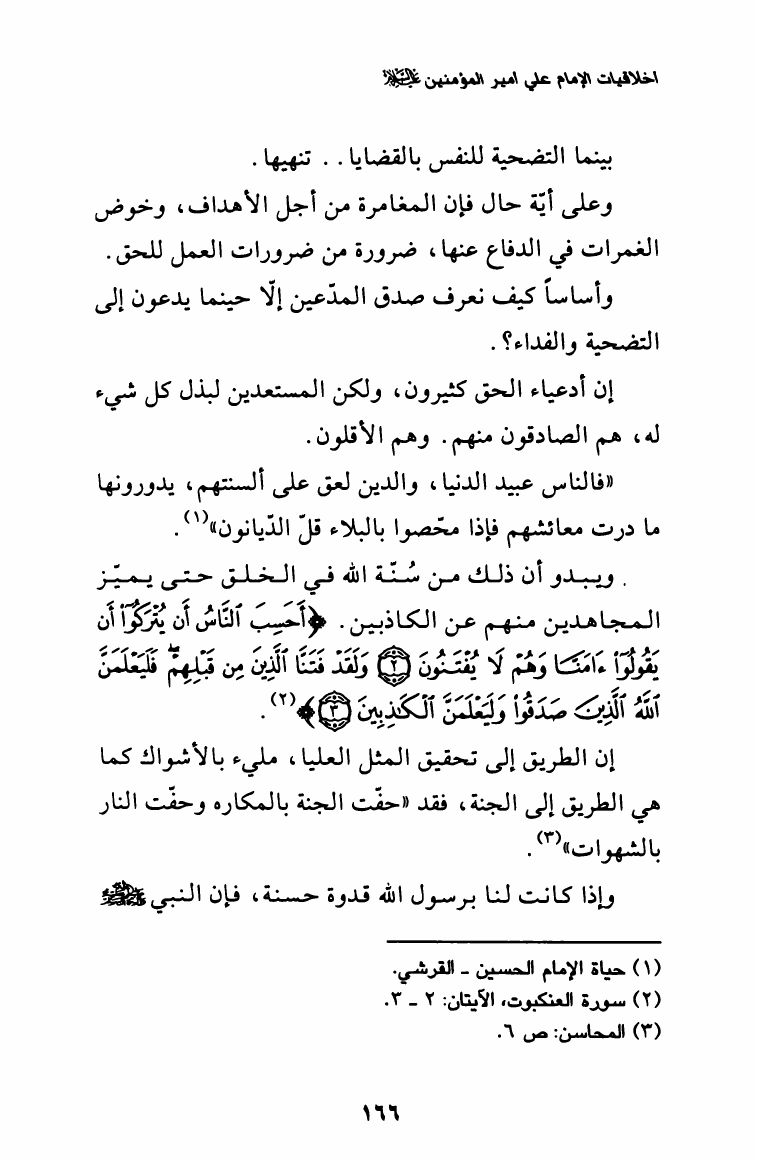 اخلاقيات الإمام علي امير المؤمنين عليه السلام
بينما التضحية للنفس بالقضايا.. تنهيها.
وعلى أيّة حال فإن المغامرة من أجل الأهداف، وخوض
الغمرات في الدفاع عنها، ضرورة من ضرورات العمل للحق.
وأساساً كيف نعرف صدق المدّعين إلّا حينما يدعون إلى
التضحية والفداء؟.
إن أدعياء الحق كثيرون، ولكن المستعدين لبذل كل شيء
له، هم الصادقون منهم. وهم الأقلون.
«فالناس عبيد الدنيا، والدين لعق على ألسنتهم، يدورونها
ما درت معائشهم فإذا محّصوا بالبلاء قلّ الدّيانون»(١).
. ويبدو أن ذلك من سُنّة الله في الخلق حتى يميّز
المجاهدين منهم عن الكاذبين. ﴿أَحَسِبَ ٱلنَّاسُ أَن يُتْرَكُوٓا۟ أَن
يَقُولُوٓا۟ ءَامَنَّا وَهُمْ لَا يُفْتَنُونَ ۝٢ وَلَقَدْ فَتَنَّا ٱلَّذِينَ مِن قَبْلِهِمْ ۖ فَلَيَعْلَمَنَّ
ٱللَّهُ ٱلَّذِينَ صَدَقُوا۟ وَلَيَعْلَمَنَّ ٱلْكَٰذِبِينَ ۝٣﴾(٢).
إن الطريق إلى تحقيق المثل العليا، مليء بالأشواك كما
هي الطريق إلى الجنة، فقد «حفّت الجنة بالمكاره وحفّت النار
بالشهوات»(٣).
وإذا كانت لنا برسول الله قدوة حسنة، فإن النبي ﷺ
(١) حياة الإمام الحسين ـ القرشي.
(٢) سورة العنكبوت، الآيتان: ٢ ـ ٣.
(٣) المحاسن: ص ٦.
١٦٦